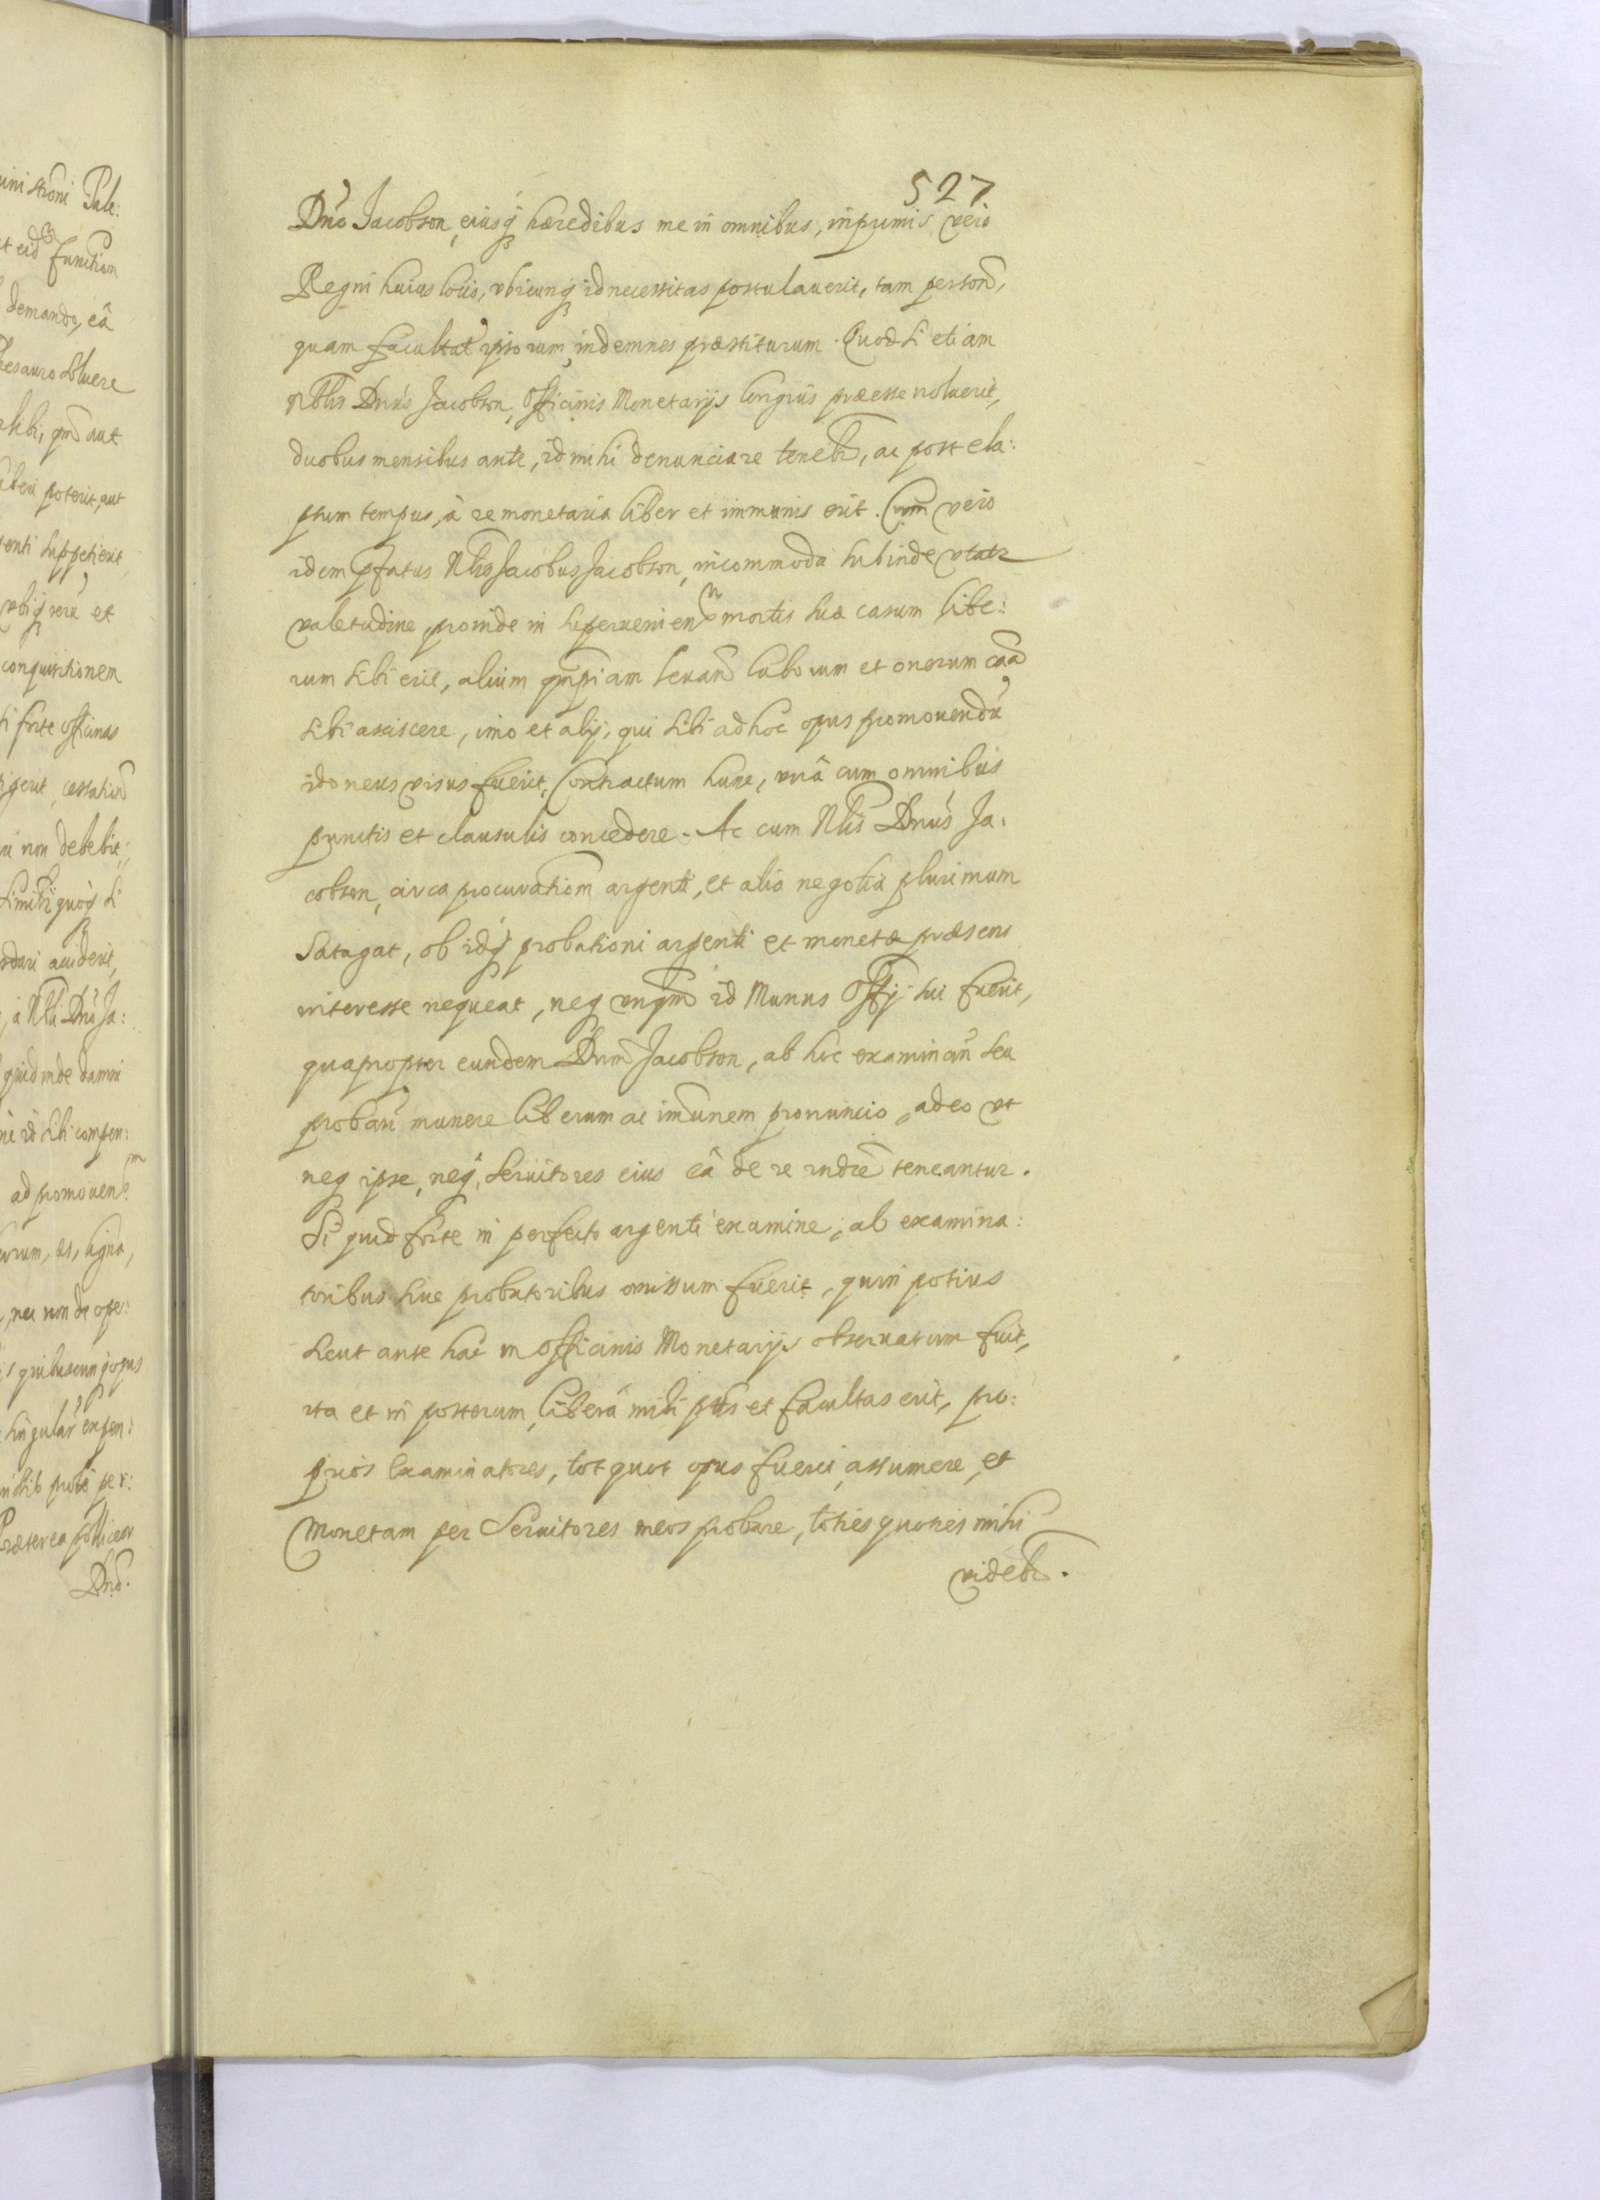 527
Dno Jacobson, eiusq hæredibus me in omnibus, inprimis vero
Regni huius locis, vbicunq id necessitas postulauerit, tam person,
quam facultat ipsorum, indemnes præstiturum. Quodsi etiam
Nblis Dnus Jacobson, Officinis Monetarijs longius præesse noluerit,
duobus mensibus ante, id mihi denunciare teneb, ac post ela:
psum tempus, à re monetaria liber et immunis erit. Cum vero
idem pfatus Nblis Jacobus Jacobson, incommoda subinde vtatr
valetudine, proinde in superuenien mortis suæ casum libe:
rum sibi erit, alium qmpiam leuand laborum et onerum caa
sibi asciscere, imo et alij, qui sibi ad hoc opus promouendu
idoneus visus fuerit, Contractum hunc, vnâ cum omnibus
punctis et clausulis concedere. Ac cum Nlis Dnus Ja:
cobson, circa procurationem argenti, et alia negotia plurimum
satagat, ob idq probationi argenti et monetæ præsens
interesse nequeat, neq vnqm id Munus Offij sui fuerit,
quapropter eundem Dnm Jacobson, ab hoc examinan seu
proban munere liberum ac imunem pronuncio, adeo vt
neq ipse, neq, seruitores eius eâ de re rndre teneantur.
Si quid forte in perfecto argenti examine, ab examina:
toribus siue probatoribus omissum fuerit, quin potius
sicut ante hac in Officinis Monetarijs obseruatum fuit,
ita et in posterum, libera mihi ptas et facultas erit, pro:
prios examinatores, tot quot opus fuerit, assumere, et
Monetam per Seruitores meos probare, toties quoties mihi
videb.